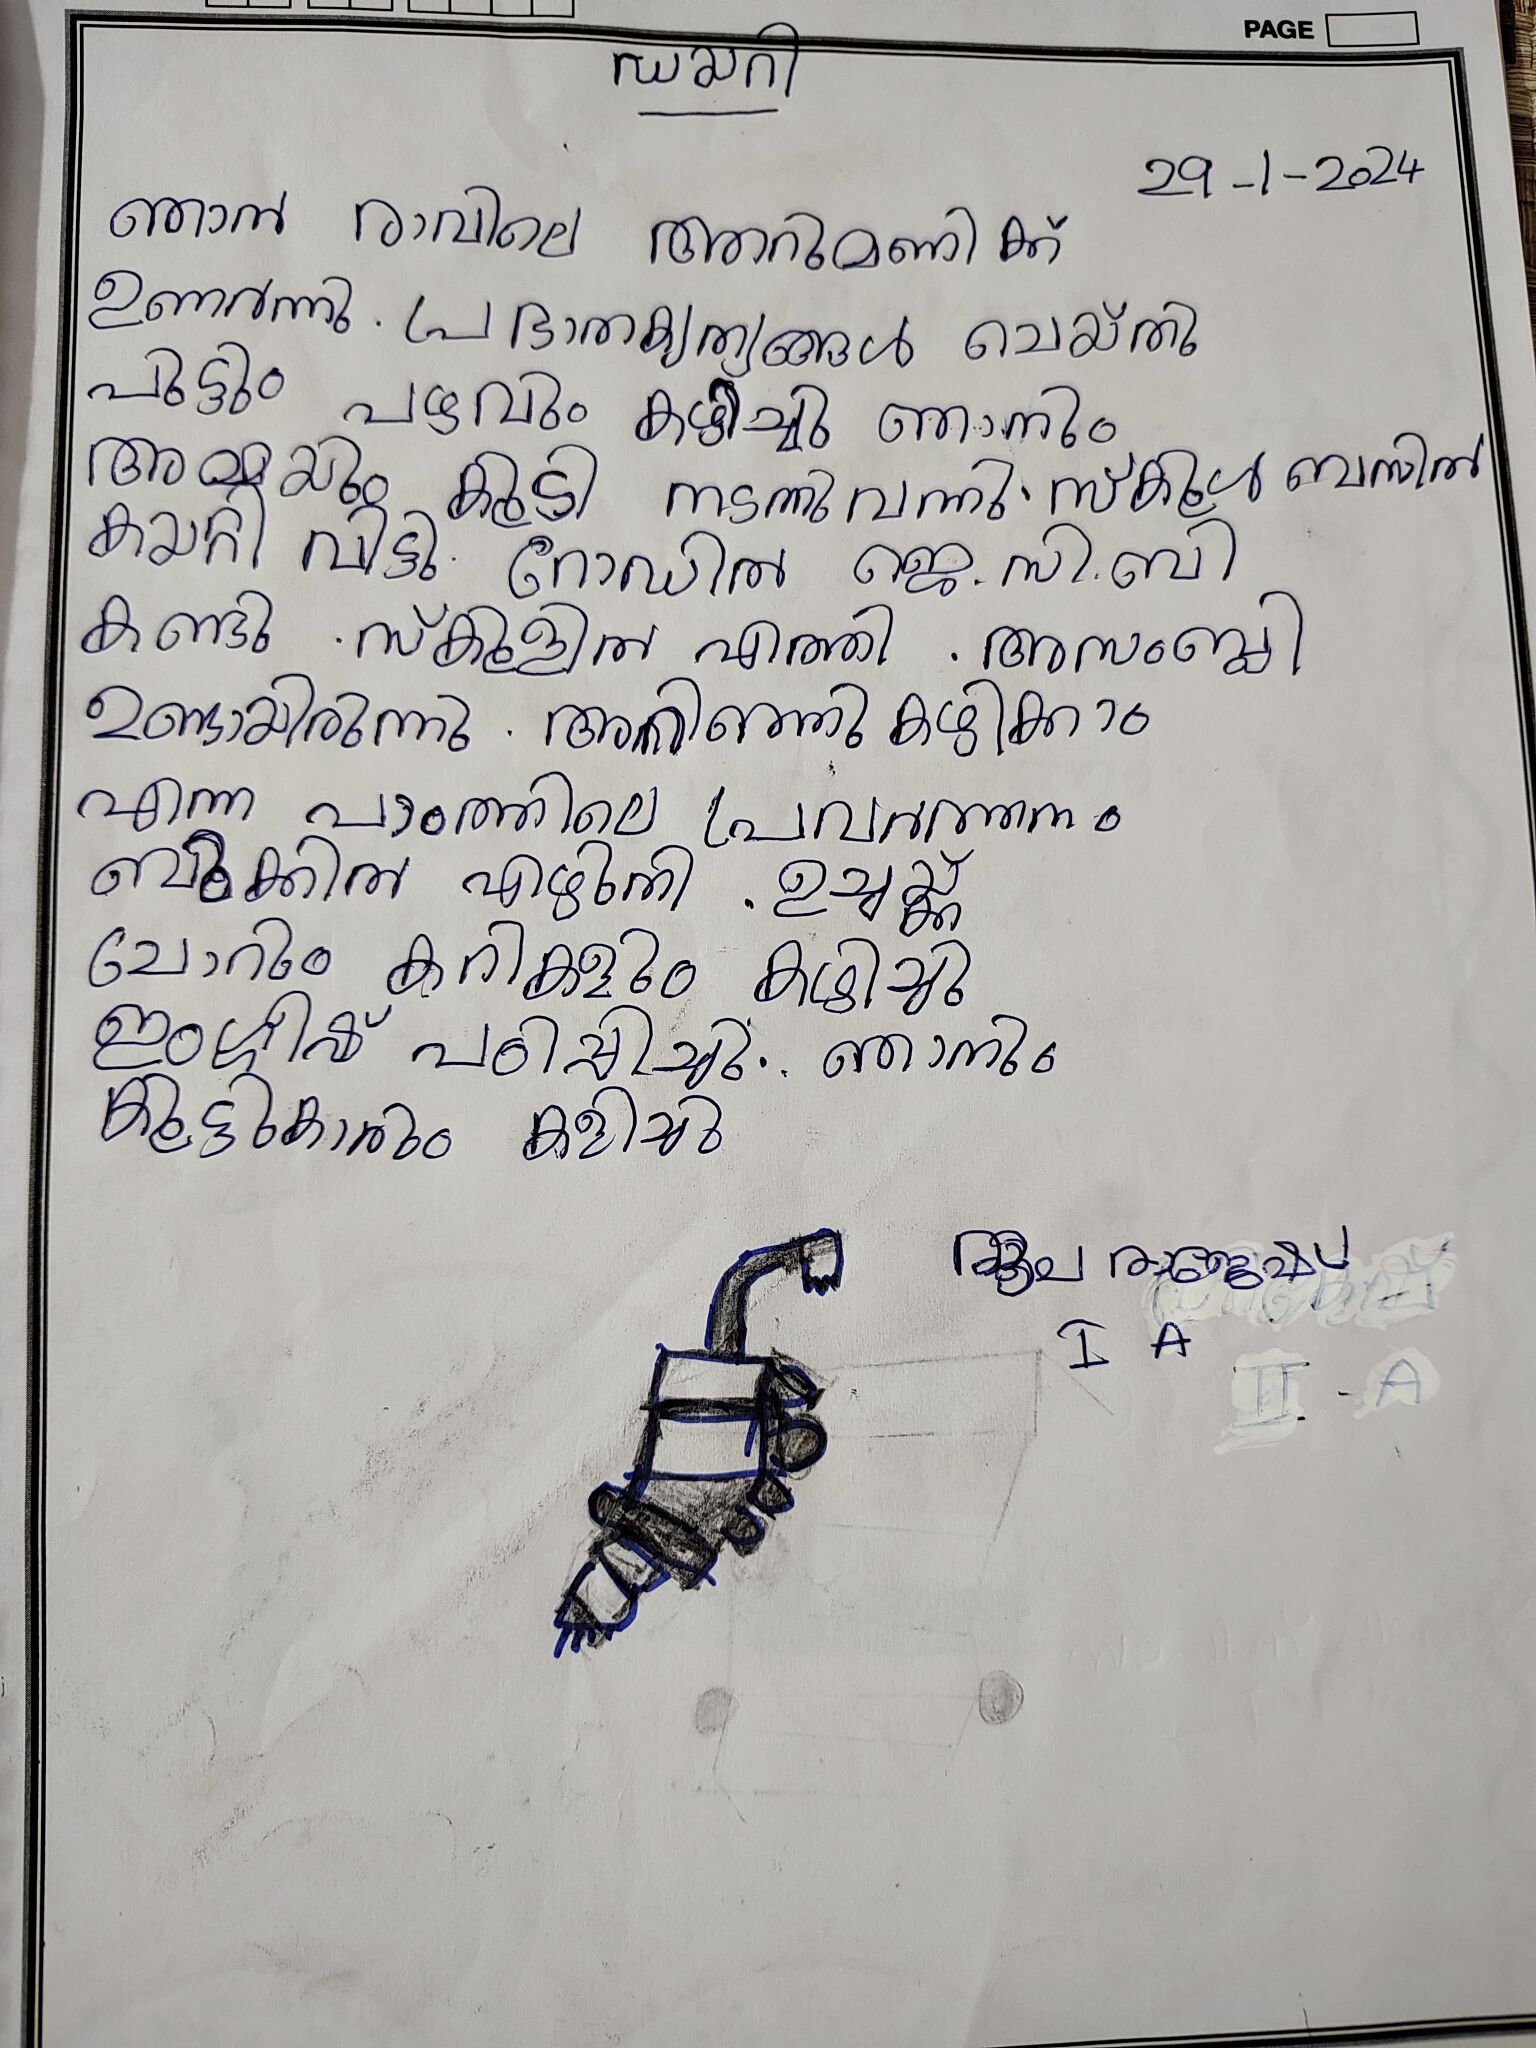 PAGE
ഡയറി
29-1-2024
ഞാൻ രാവിലെ ആറുമണിക്ക്
ഉണർന്നു. പ്രഭാതകൃത്യങ്ങൾ ചെയ്തു
പുട്ടും പഴവും കഴിച്ചു ഞാനും
അമ്മയും കൂടി നടന്നുവന്നു. സ്കൂൾ ബസിൽ
കയറ്റി വിട്ടു. റോഡിൽ ജെ.സി.ബി
കണ്ടു. സ്കൂളിൽ എത്തി. അസംബ്ലി
ഉണ്ടായിരുന്നു. അറിഞ്ഞു കഴിക്കാം
എന്ന പാഠത്തിലെ പ്രവർത്തനം
ബുക്കിൽ എഴുതി. ഉച്ചയ്ക്ക്
ചോറും കറികളും കഴിച്ചു
ഇംഗ്ലീഷ് പഠിപ്പിച്ചു.. ഞാനും
കൂട്ടുകാരും കളിച്ചു
I A
II - A